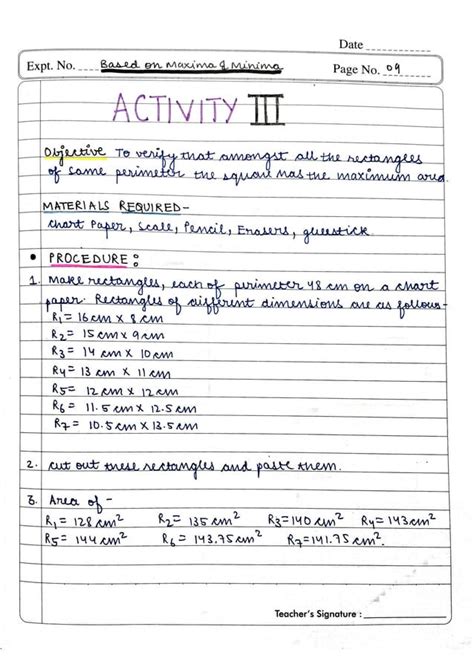 Date
Expt. No. Based on Maxima & Minima
Page No. 09
ACTIVITY III
Objective To verify that amongst all the rectangles
of same perimeter the square has the maximum area.
MATERIALS REQUIRED-
Chart Paper, Scale, Pencil, Erasers, gluestick.
• PROCEDURE:
1. Make rectangles, each of perimeter 48 cm on a chart
paper. Rectangles of different dimensions are as follows-
R1 = 16 cm X 8 cm
R2 = 15 cm X 9 cm
R3 = 14 cm X 10 cm
R4 = 13 cm X 11 cm
R5 = 12 cm X 12 cm
R6 = 11.5 cm X 12.5 cm
R7 = 10.5 cm X 13.5 cm
2. cut out these rectangles and paste them.
3. Area of -
R1 = 128 cm² R2 = 135 cm² R3 = 140 cm² R4 = 143 cm²
R5 = 144 cm² R6 = 143.75 cm² R7 = 141.75 cm².
Teacher's Signature :